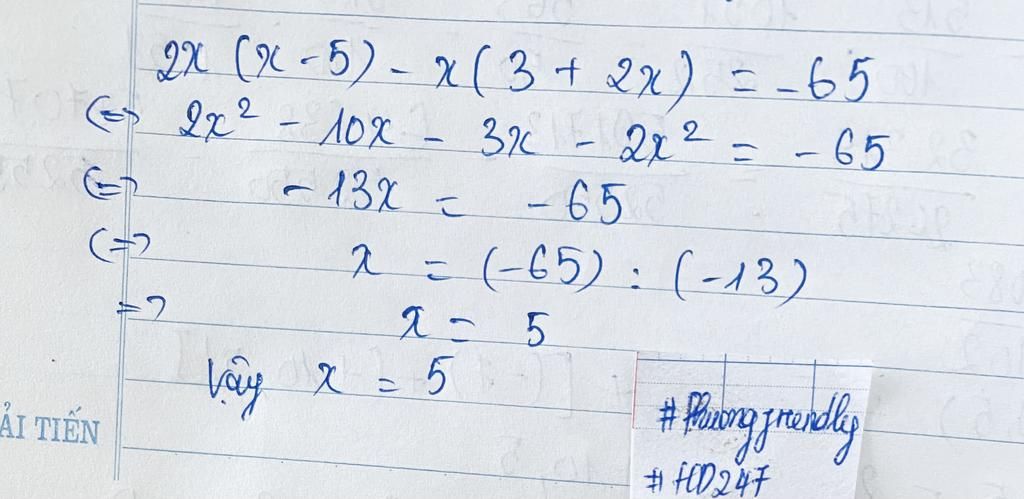 2x (x - 5) - x(3 + 2x) = -65
(=) 2x² - 10x - 3x - 2x² = -65
(=) -13x = -65
(=) x = (-65) : (-13)
=> x = 5
Vậy x = 5
ẢI TIẾN
#Phuongfriendly
#HD247